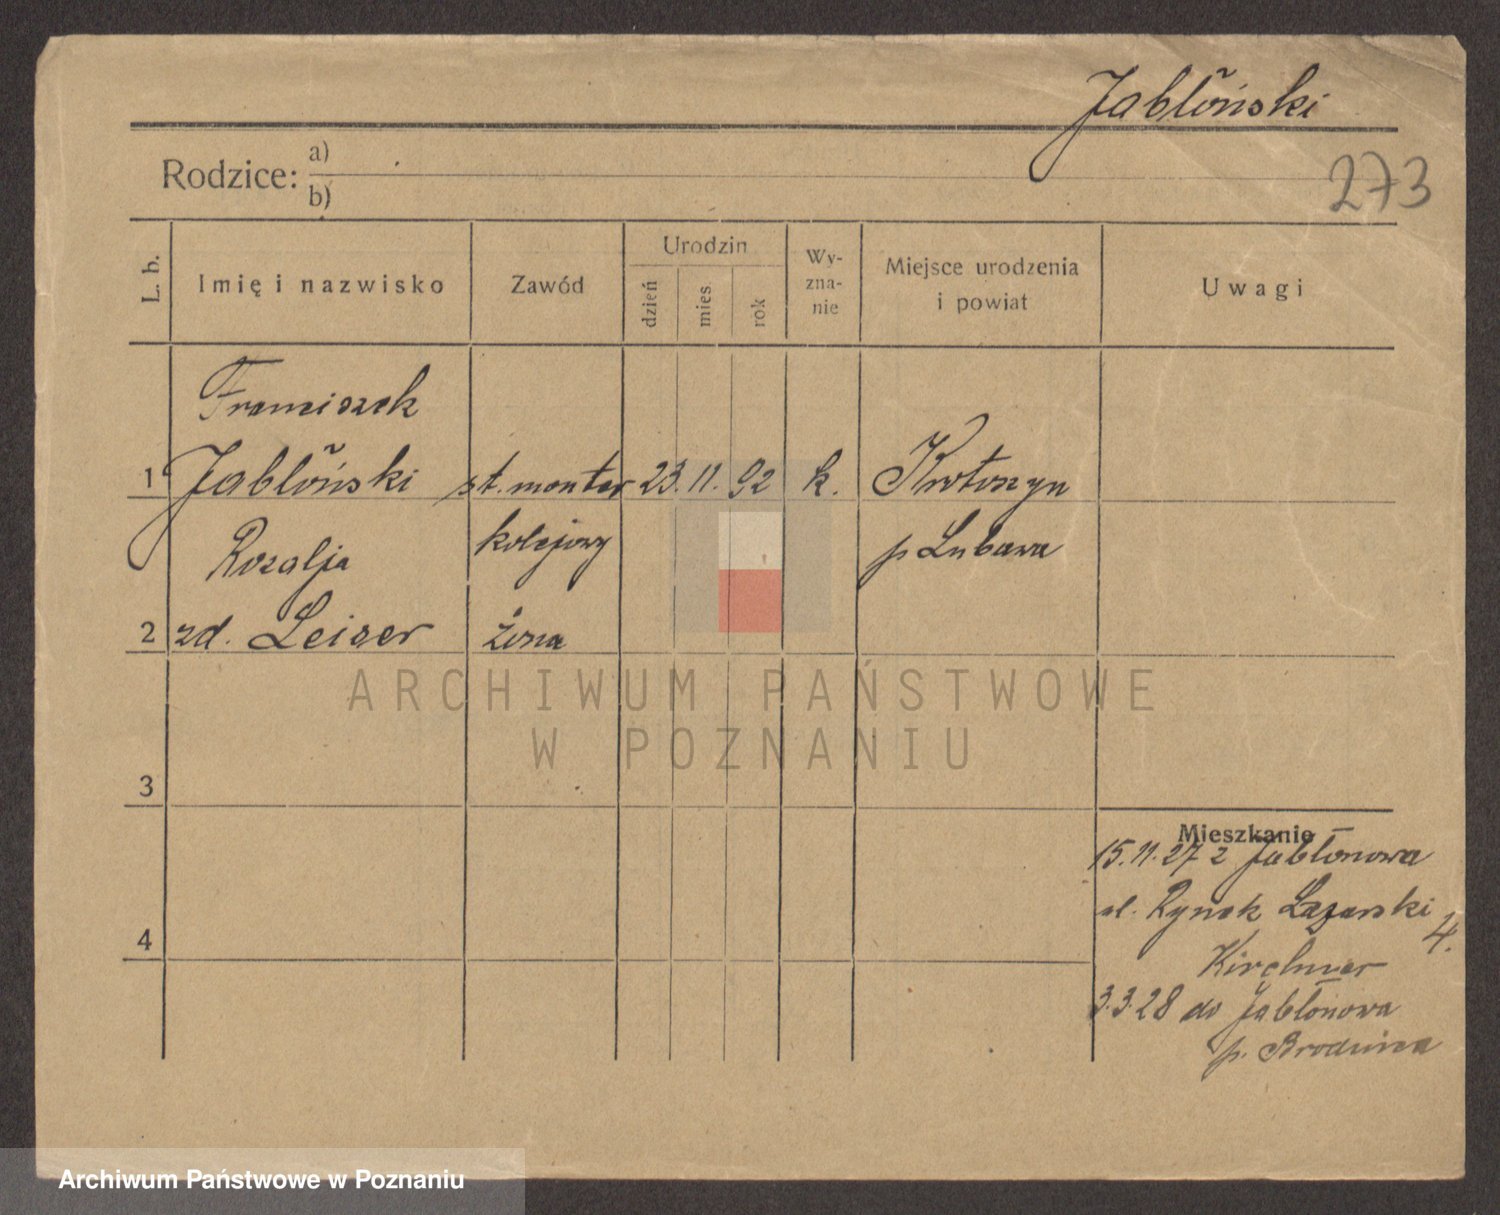 Jabłoński
273
Rodzice: a)
b)
L. b.
Imię i nazwisko
Zawód
Urodzin
dzień
mies.
rok
Wy-
zna-
nie
Miejsce urodzenia
i powiat
Uwagi
Franciszek
1 Jabłoński st. monter 23. 11. 92 k. Krotoszyn
kolejowy p Lubawa
Rozalja
2 zd. Leiser żona
3
4
Mieszkanie
15.11.27 z Jabłonowa
ul. Rynek Łazarski
4.
Kirchner
3.3.28 do Jabłonowa
p. Brodnica
ARCHIWUM PAŃSTWOWE
W POZNANIU
Archiwum Państwowe w Poznaniu